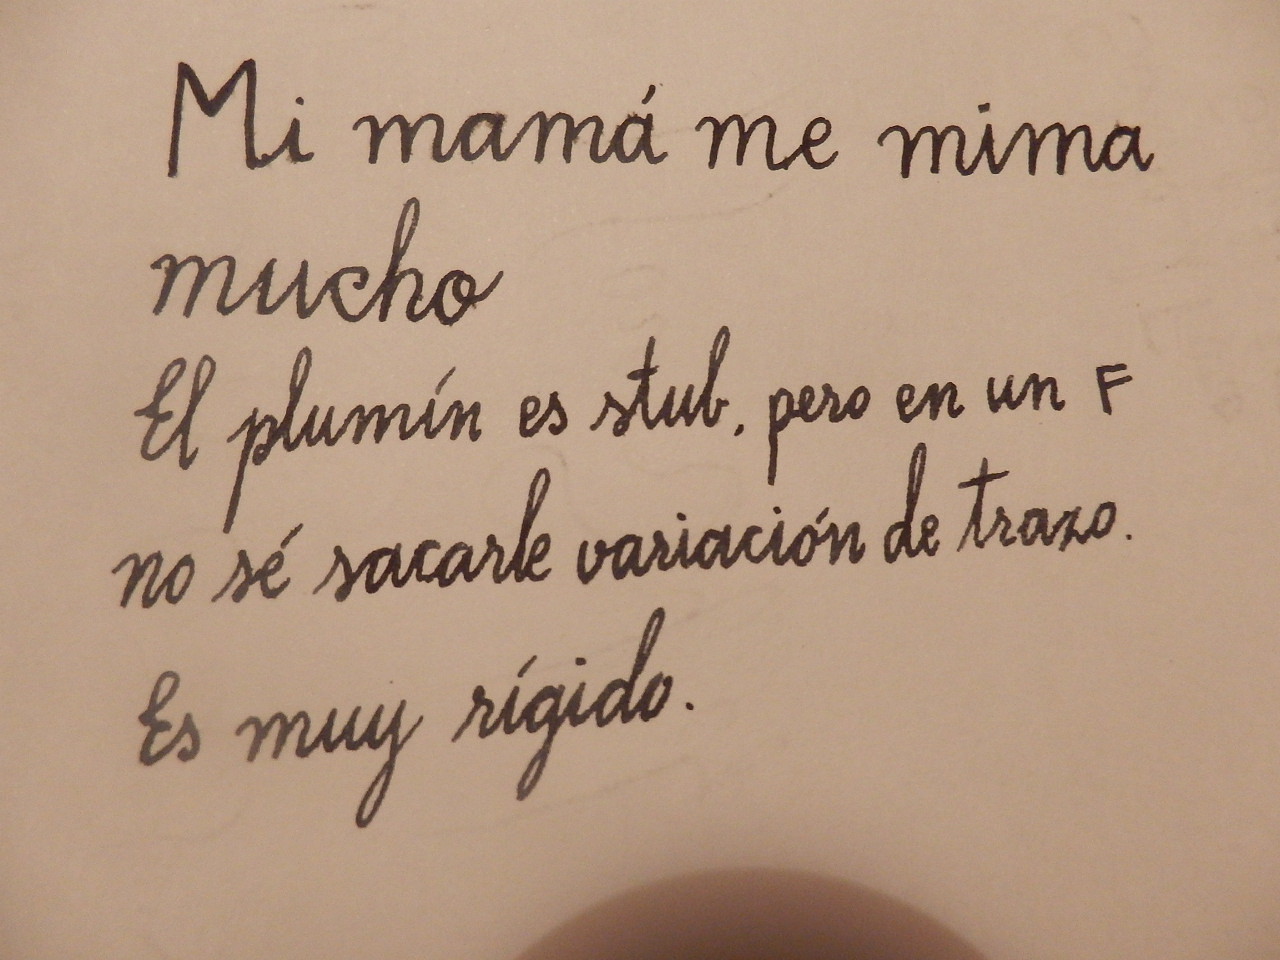 Mi mamá me mima
mucho
El plumín es stub, pero en un F
no sé sacarle variación de trazo.
Es muy rígido.